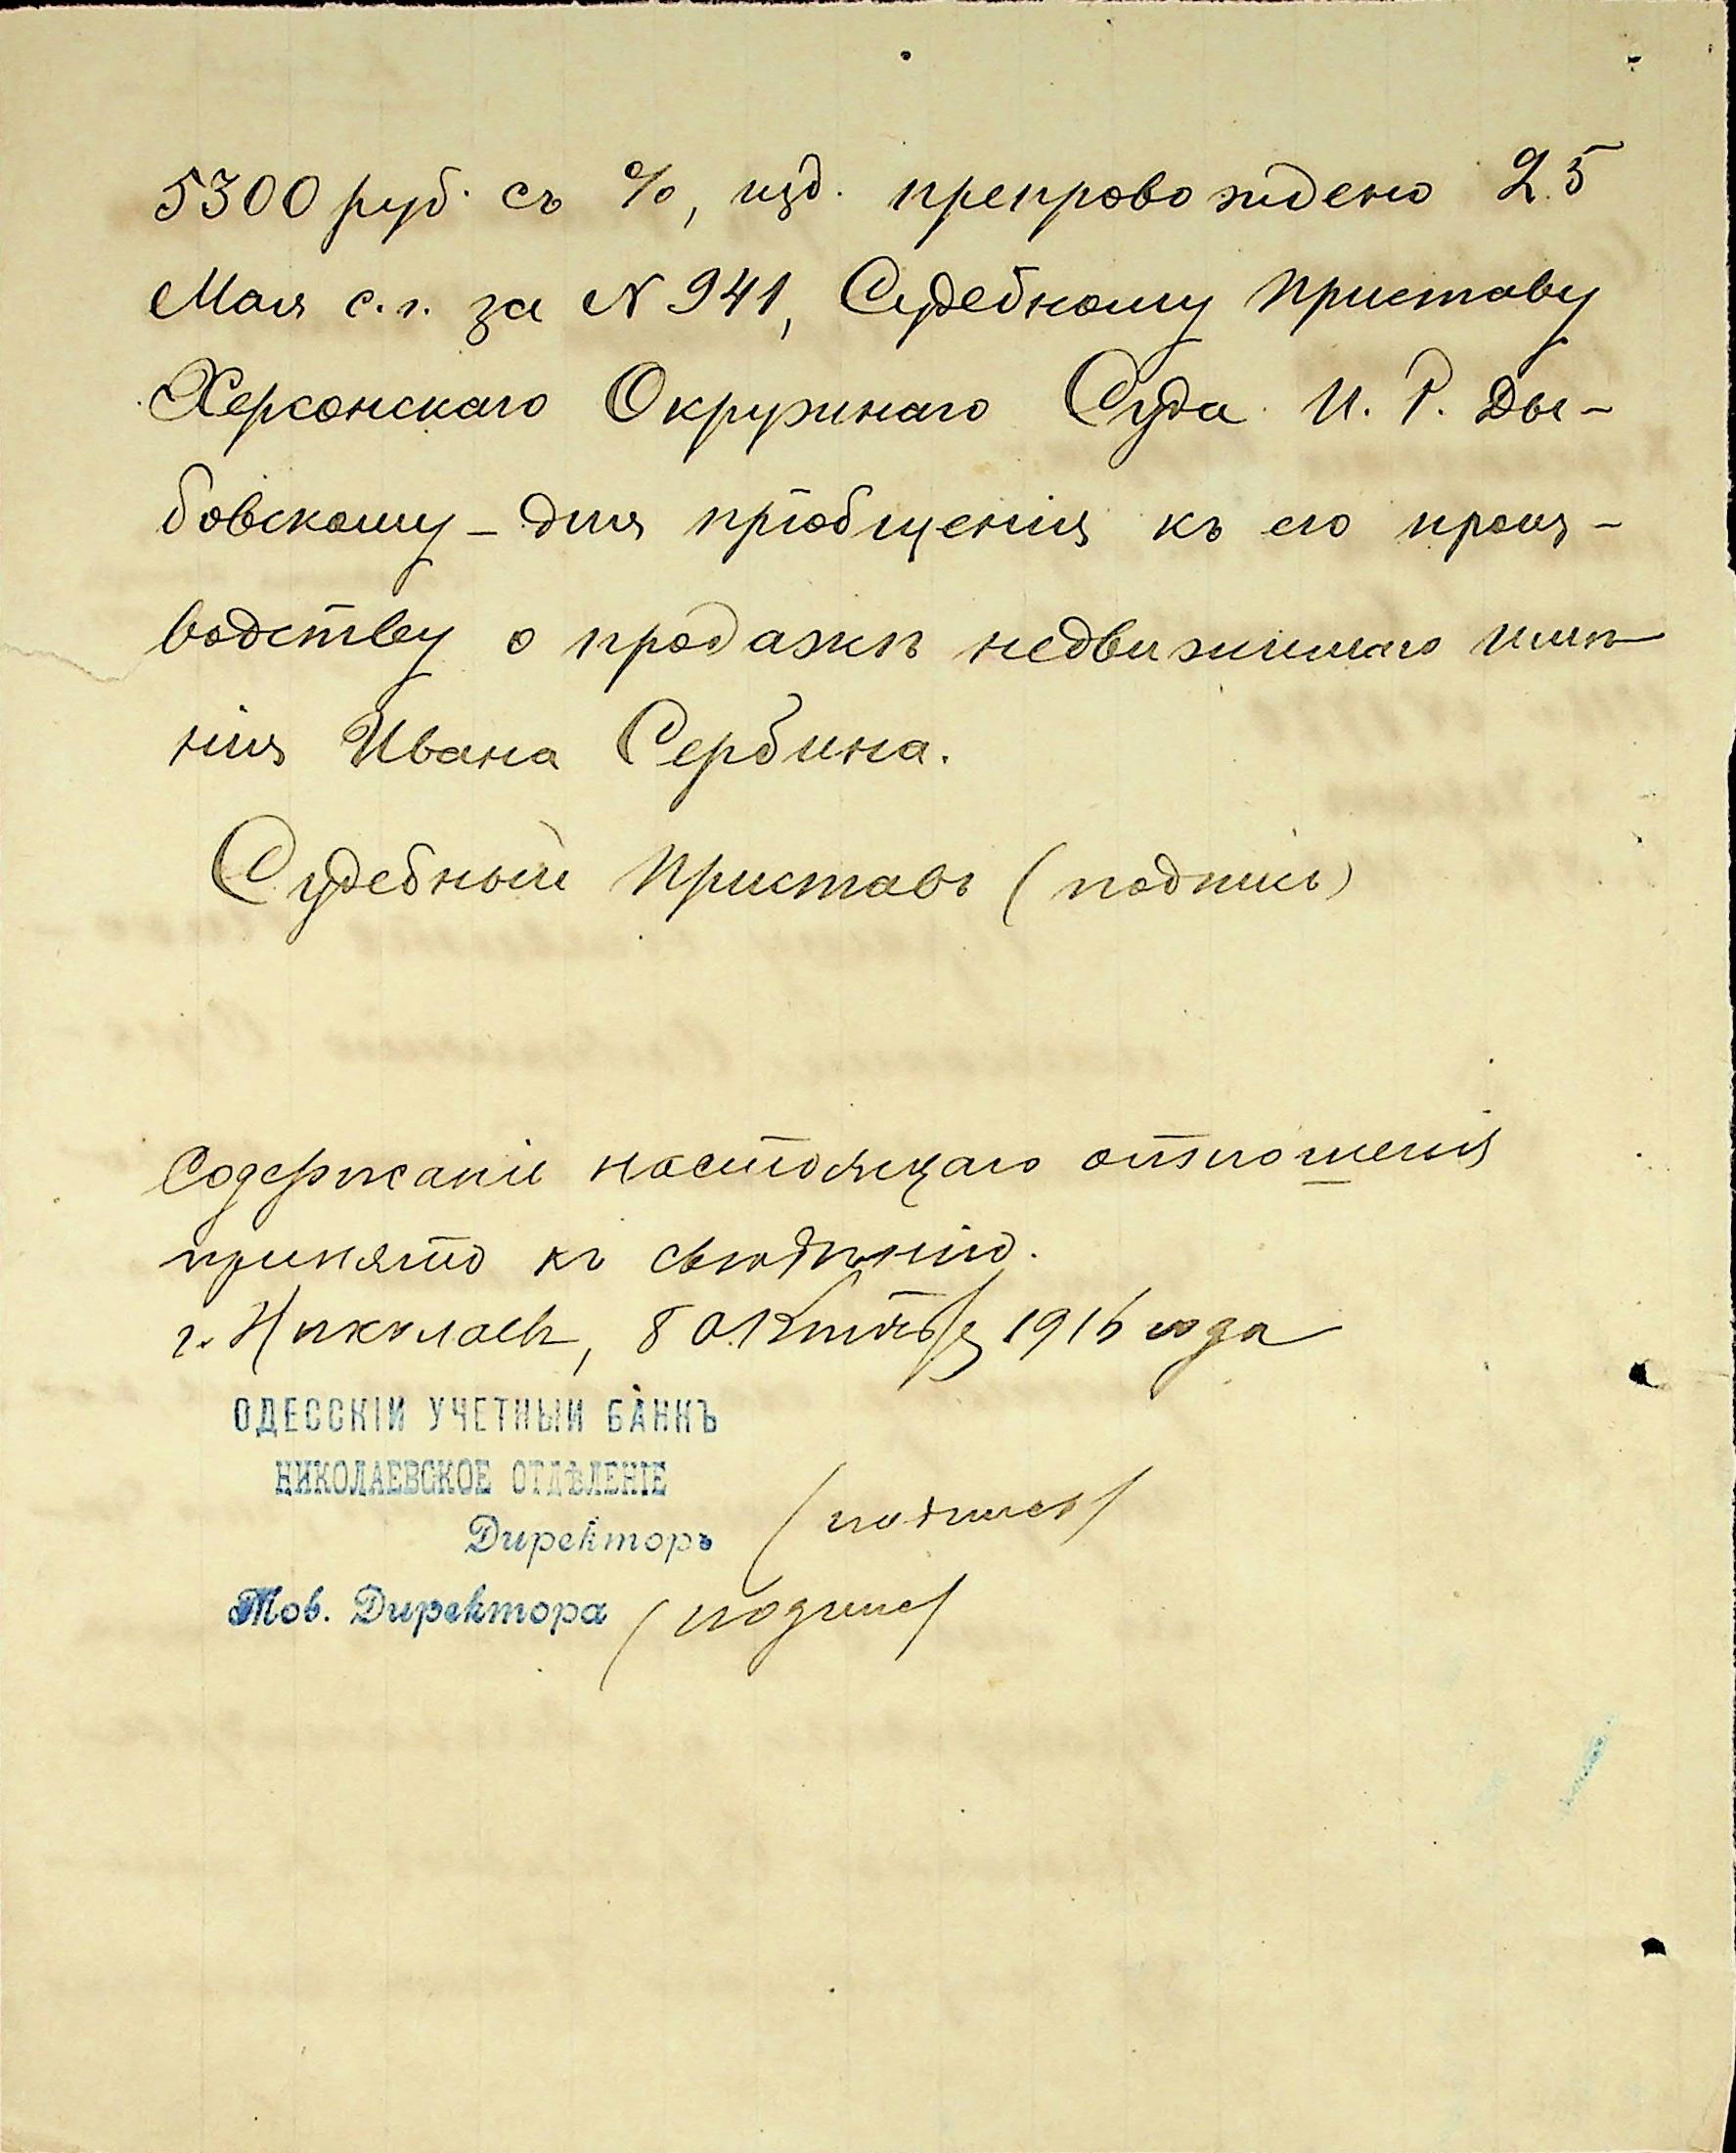 5300 руб. съ %, изд. препровождено 25
Мая с.г. за N 941, Судебному Приставу
Херсонскаго Окружнаго Суда И. Р. Ды-
бовскому – для пріобщенія къ его произ-
водству о продажѣ недвижимаго имѣ
нія Ивана Сербина.
Судебный Приставъ (подпись)
Содержаніе настоящаго отношенія
принято къ свѣдѣнію.
г. Николаевъ, 8 Октября 1916 года
ОДЕССКІЙ УЧЕТНЫЙ БАНКЪ
НИКОЛАЕВСКОЕ ОТДѢЛЕНІЕ
Директоръ (подпись)
Тов. Директора (подпись)